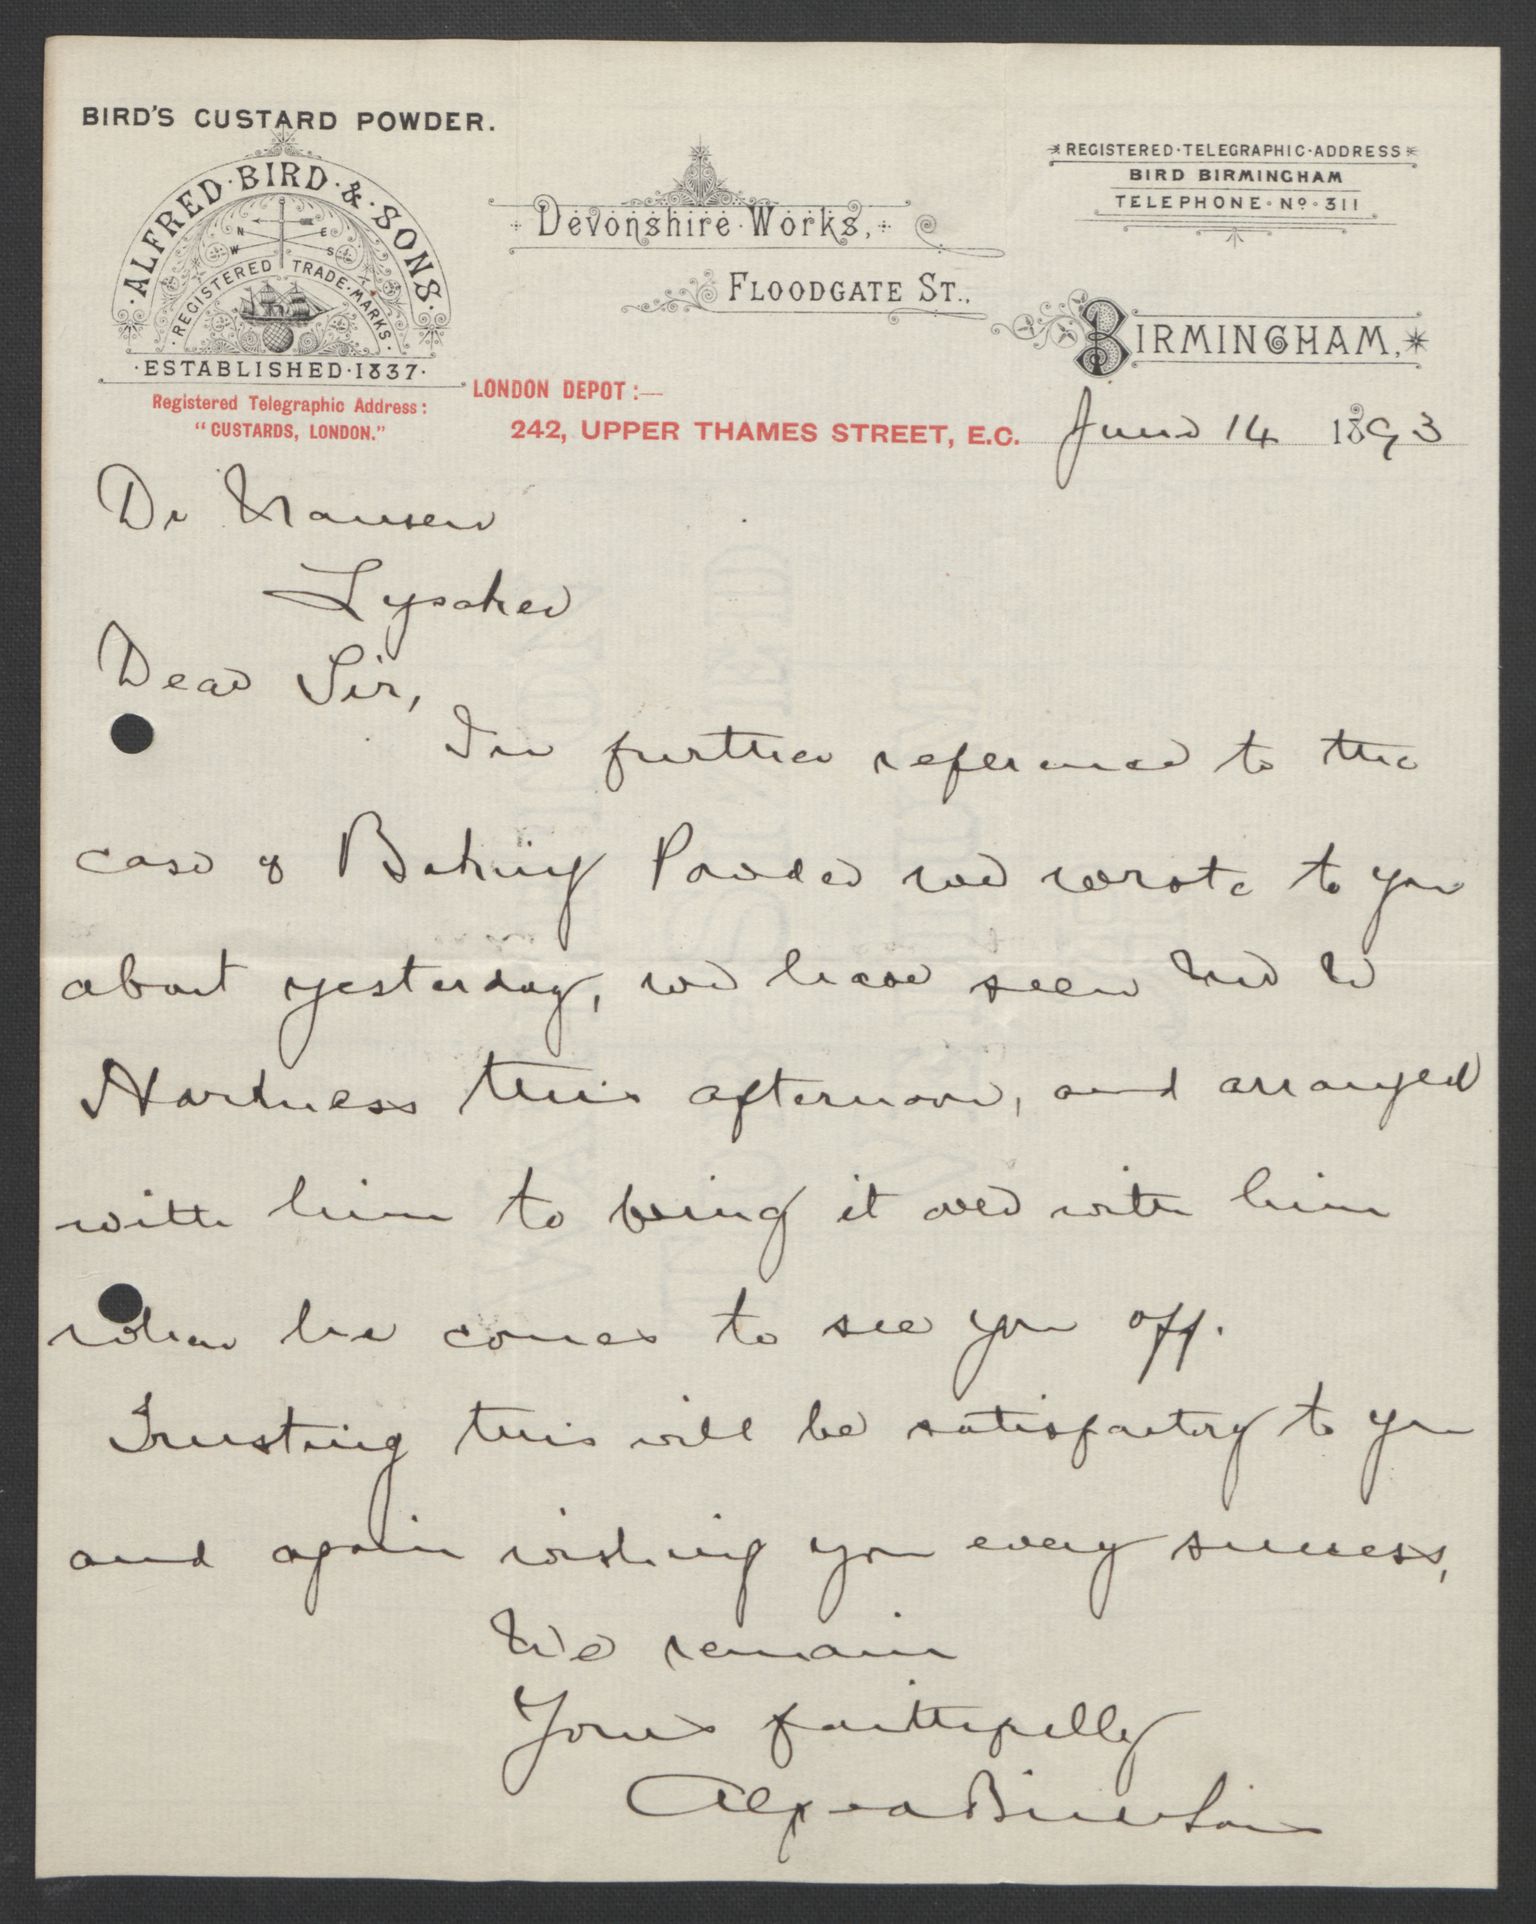 BIRD'S CUSTARD POWDER.
·ALFRED·BIRD·&·SONS·
N E
W S
·REGISTERED TRADE·MARKS·
·ESTABLISHED·1837·
Registered Telegraphic Address:
"CUSTARDS, LONDON."
Devonshire·Works,
FLOODGATE ST.,
REGISTERED·TELEGRAPHIC·ADDRESS
BIRD BIRMINGHAM
TELEPHONE·No·311
BIRMINGHAM,
LONDON DEPOT:—
242, UPPER THAMES STREET, E.C. June 14 1893
Dr Nansen
Lysaker
Dear Sir,
In further reference to the
case of Baking Powder we wrote to you
about yesterday, we have seen Mr W
Harkness this afternoon, and arranged
with him to bring it over with him
when he comes to see you off.
Trusting this will be satisfactory to you
and again wishing you every success,
We remain
Yours faithfully
Alfred Bird & Sons